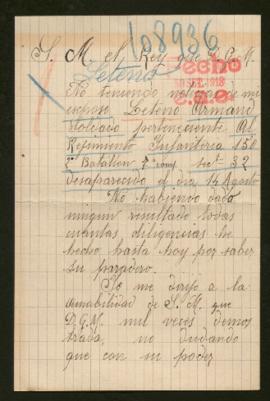 108936
S. M. el Rey que D. G. M.
Leteno
hecho
SET. 1918
No teniendo noticias de mi
esposo Leteno Armand
Soldado perteneciente Al
Regimiento Infanteria 150
Batallon comp. 32
desaparecido el dia 14 Agosto
No habiendo dado
ningun resultado todas
cuantas diligencias he
hecho hasta hoy por saber
su paradero.
Yo me dirijo a la
amabilidad de S. M. que
D. G. M. mil veces demos
trada, no dudando
que con su poder